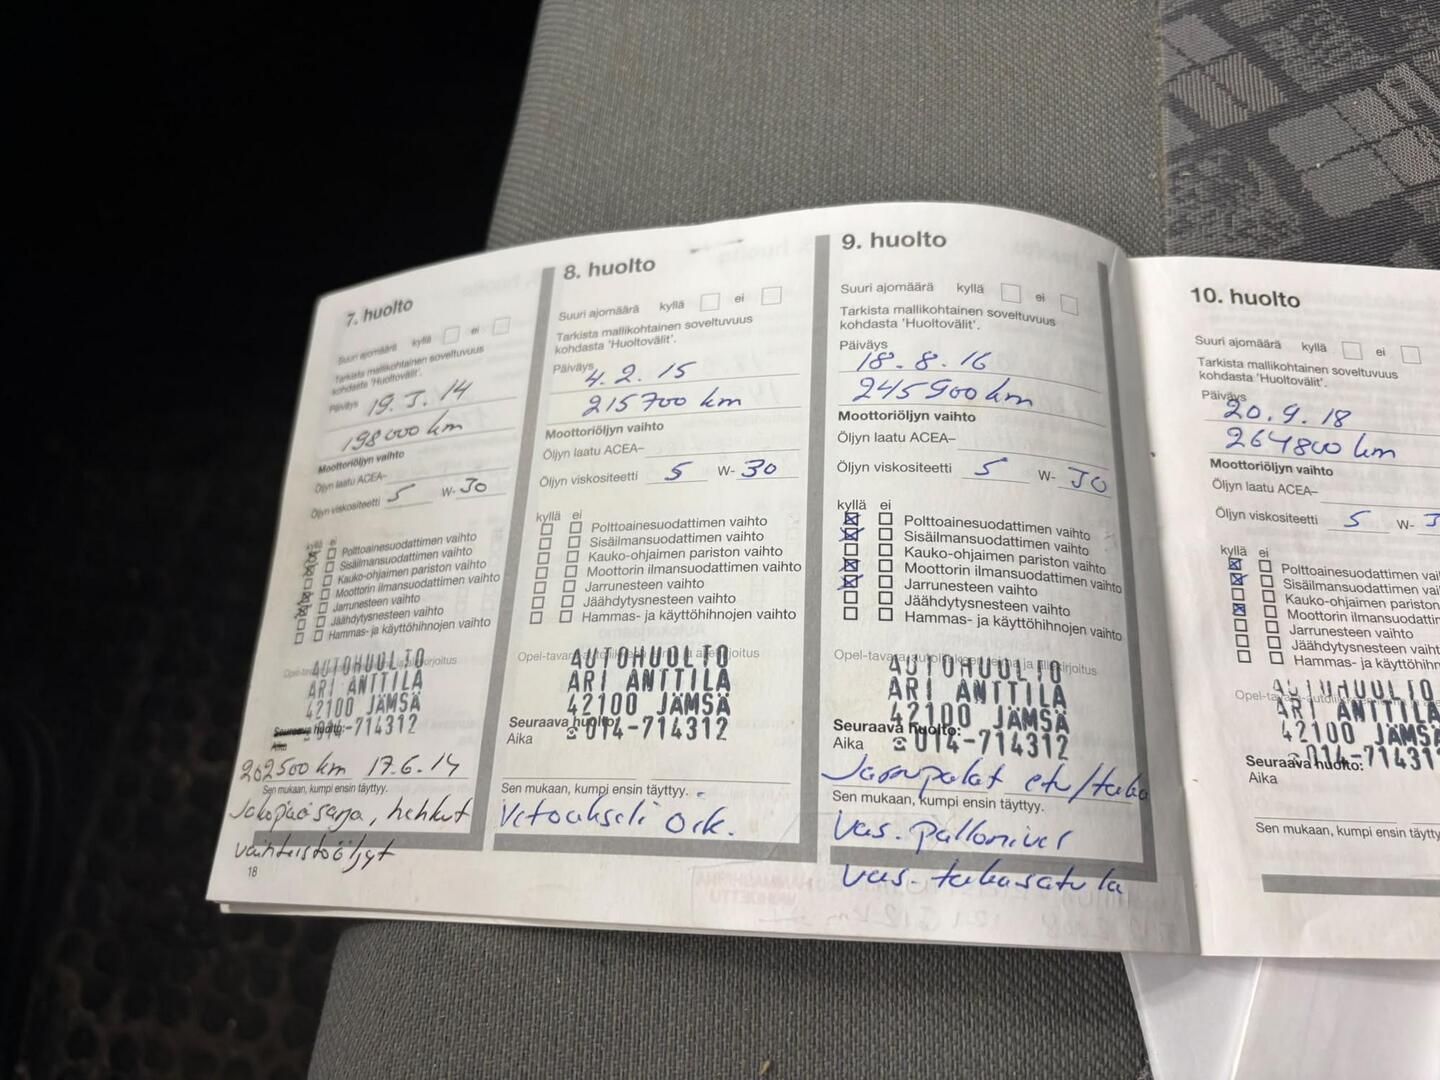 7. huolto
Suuri ajomäärä kyllä ei
Tarkista mallikohtainen soveltuvuus
kohdasta 'Huoltovälit'.
Päiväys 19.3.14
198000 km
Moottoriöljyn vaihto
Öljyn laatu ACEA–
Öljyn viskositeetti 5 W- 30
kyllä ei
Polttoainesuodattimen vaihto
Sisäilmansuodattimen vaihto
Kauko-ohjaimen pariston vaihto
Moottorin ilmansuodattimen vaihto
Jarrunesteen vaihto
Jäähdytysnesteen vaihto
Hammas- ja käyttöhihnojen vaihto
AUTOHUOLTO
ARI ANTTILA
42100 JÄMSÄ
☎014-714312
Seuraava huolto:
Aika
202500 km 17.6.14
Sen mukaan, kumpi ensin täyttyy.
Jakopääsarja, hehkut
vaihteistoöljyt
18
8. huolto
Suuri ajomäärä kyllä ei
Tarkista mallikohtainen soveltuvuus
kohdasta 'Huoltovälit'.
Päiväys 4.2.15
215700 km
Moottoriöljyn vaihto
Öljyn laatu ACEA–
Öljyn viskositeetti 5 W- 30
kyllä ei
Polttoainesuodattimen vaihto
Sisäilmansuodattimen vaihto
Kauko-ohjaimen pariston vaihto
Moottorin ilmansuodattimen vaihto
Jarrunesteen vaihto
Jäähdytysnesteen vaihto
Hammas- ja käyttöhihnojen vaihto
AUTOHUOLTO
ARI ANTTILA
42100 JÄMSÄ
☎014-714312
Seuraava huolto:
Aika
Sen mukaan, kumpi ensin täyttyy.
Vetoakseli oik.
9. huolto
Suuri ajomäärä kyllä ei
Tarkista mallikohtainen soveltuvuus
kohdasta 'Huoltovälit'.
Päiväys
18.8.16
245900 km
Moottoriöljyn vaihto
Öljyn laatu ACEA–
Öljyn viskositeetti 5 W- 30
kyllä ei
Polttoainesuodattimen vaihto
Sisäilmansuodattimen vaihto
Kauko-ohjaimen pariston vaihto
Moottorin ilmansuodattimen vaihto
Jarrunesteen vaihto
Jäähdytysnesteen vaihto
Hammas- ja käyttöhihnojen vaihto
AUTOHUOLTO
ARI ANTTILA
42100 JÄMSÄ
☎014-714312
Seuraava huolto:
Aika
Jarrupalat etu/taka
Sen mukaan, kumpi ensin täyttyy.
Vas. pallonivel
Vas. takasatula
10. huolto
Suuri ajomäärä kyllä ei
Tarkista mallikohtainen soveltuvuus
kohdasta 'Huoltovälit'.
Päiväys
20.9.18
264800 km
Moottoriöljyn vaihto
Öljyn laatu ACEA–
Öljyn viskositeetti 5 W- 3
kyllä ei
Polttoainesuodattimen vai
Sisäilmansuodattimen vai
Kauko-ohjaimen pariston
Moottorin ilmansuodattim
Jarrunesteen vaihto
Jäähdytysnesteen vaiht
Hammas- ja käyttöhihn
AUTOHUOLTO
ARI ANTTILA
42100 JÄMSÄ
☎014-71431
Seuraava huolto:
Aika
Sen mukaan, kumpi ensin täytty